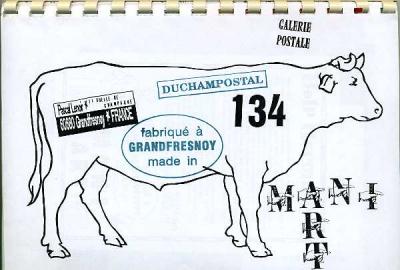 GALERIE
POSTALE
DUCHAMPOSTAL
134
Pascal Lenoir
60680 Grandfresnoy FRANCE
fabriqué à
GRANDFRESNOY
made in
MANI
ART